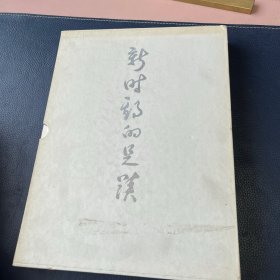 新时期的足蹟